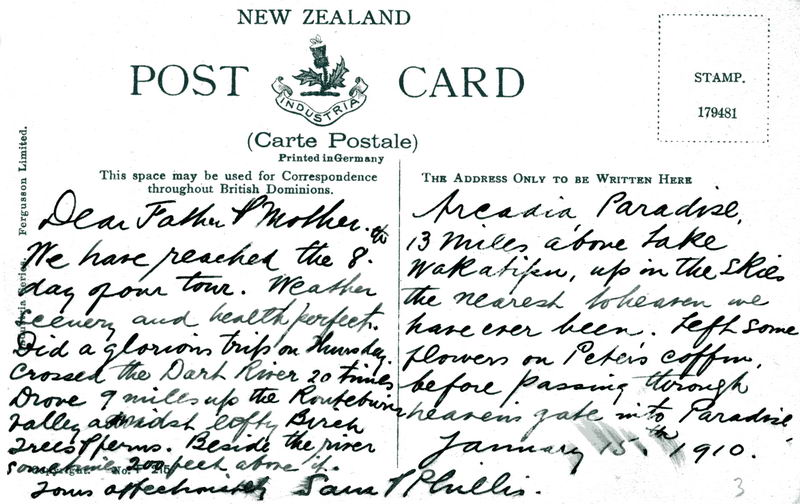 NEW ZEALAND
POST CARD
INDUSTRIA
(Carte Postale)
Printed in Germany
STAMP.
179481
Fergusson Limited.
Series.
This space may be used for Correspondence
throughout British Dominions.
Dear Father & Mother. etc
We have reached the 8.
day of our tour. Weather
scenery and health perfect.
Did a glorious trip on Thursday.
Crossed the Dart River 20 times
Drove 9 miles up the Routeburn
Valley amidst lofty Birch
Trees & ferns. Beside the river
sometimes 200 feet above it.
Yours affectionately Sam & Phillis.
Copyright. No.
THE ADDRESS ONLY TO BE WRITTEN HERE
Arcadia Paradise,
13 miles above Lake
Wakatipu, up in the skies
the nearest to heaven we
have ever been. Left some
flowers on Peter's coffin,
before passing through
heavens gate into Paradise
January 15.th 1910.
3